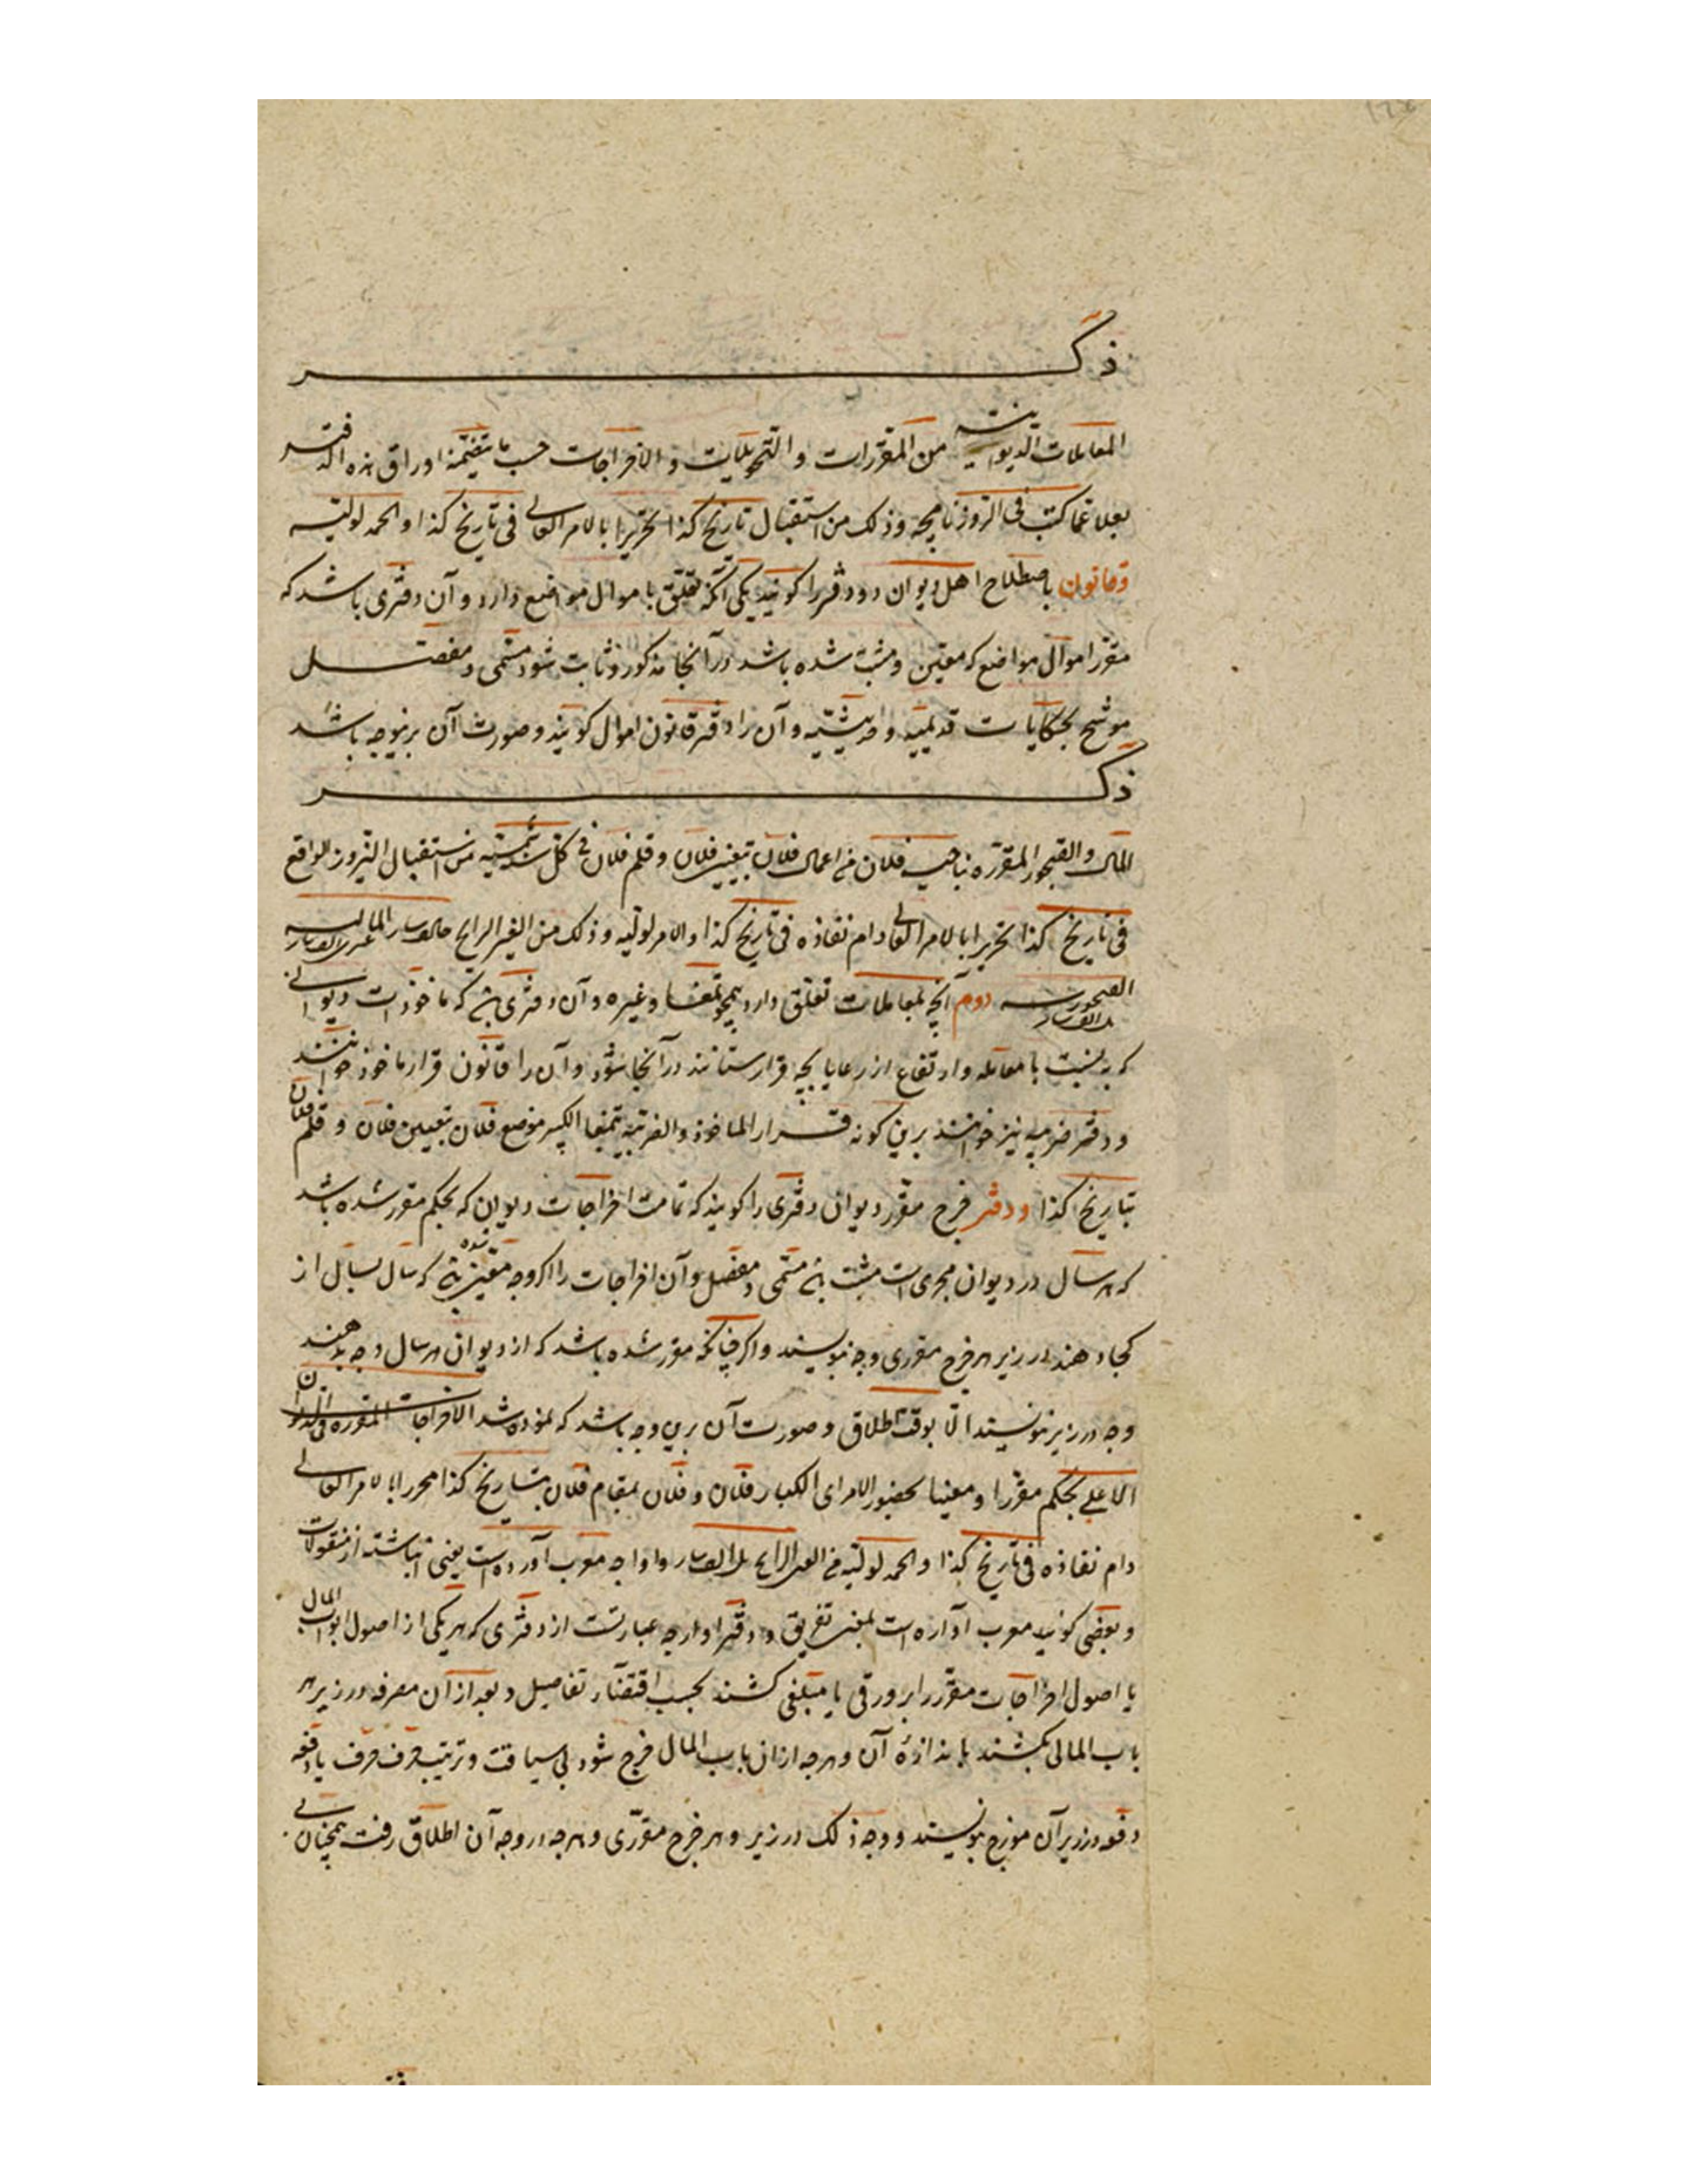 ذکر
المعاملات الدیوانیه من المقررات و التحویلات و الاخراجات حسب ما یتضمنه اوراق هذه الدفتر
نقلا عما کتب فی الروزنامچه وذلک من استقبال تاریخ کذا تحریرا بالامر العالی فی تاریخ کذا والحمد لولیه
وقانون باصطلاح اهل دیوان دو دفتر را کویند یکی آنکه تعلق باموال مواضع دارد و آن دفتری باشد که
مقرر اموال مواضع که معین و مثبت شده باشد در آنجا مذکور و ثابت شود مسمی و مفصل
موشح بحکایات قدیمیه و حدیثیه و آن را دفتر قانون اموال کویند و صورت آن برینوجه باشد
ذکر
المال والقبچور المقرره بناحیت فلان من اعمال فلان بتعیین فلان و قلم فلان فی کل سنة شمسیه من استقبال النیروز الواقع
فی تاریخ کذا تحریرا بالامر العالی دام نفاذه فی تاریخ کذا والامر لولیه و ذلک من العین الرایج المالیه
القبچوریه دوم آنچه بمعاملات تعلق دارد همچو تمغا وغیره و آن دفتری بود که ماخوذات دیوانی
که به نسبت با معامله و ارتفاع از رعایا بچه قرار ستانند در آنجا شود و آن را قانون قرار ماخوذ خوانند
و دفتر ضریبه نیز خوانند برین کونه قرار الماخوذ والضریبه بتمغا الکبیر موضع فلان بتعیین فلان و قلم فلان
بتاریخ کذا ودفتر خرج مقرر دیوان دفتری را کویند که تمامت اخراجات دیوان که بحکم مقرر شده باشد
که هر سال در دیوان مجری است مثبت بود مسمی و مفصل و آن اخراجات را اکر وجه معین بود که سال بسال از
کجا دهند در زیر هر خرج مقرری وجه نویسند و اکر چنانکه مقرر شده باشد که از دیوان هر سال وجه بدهند
وجه در زیر ننویسند الا بوقت اطلاق و صورت آن برین وجه باشد که نموده شد الاخراجات المقرره فی الدیوان
الاعلی بحکم مقررا و معینا بحضور الامرای الکبار فلان و فلان بمقام فلان بتاریخ کذا محررا بالامر العالی
دام نفاذه فی تاریخ کذا والحمد لولیه من العین الرایج و اوارجه معرب آورده است یعنی انباشته از منقولات
و بعضی کویند معرب آواره است بمعنی تفریق و دفتر اوارجه عبارتست از دفتری که هر یکی از اصول ابواب المال
یا اصول اخراجات مقرر را بر ورقی یا مبلغی کشند بحسب اقتضاء تفاصیل و بعد از آن مصرفه در زیر هر
باب المالی بکشند باندازهٔ آن و هرچه از آن باب المال خرج شود بی سیاقت و ترتیب حرف حرف یا دفعه
دفعه در زیر آن مورخ نویسند و وجه ذلک در زیر و هر خرج مقرری و هرچه در وجه آن اطلاق رفت همچنان